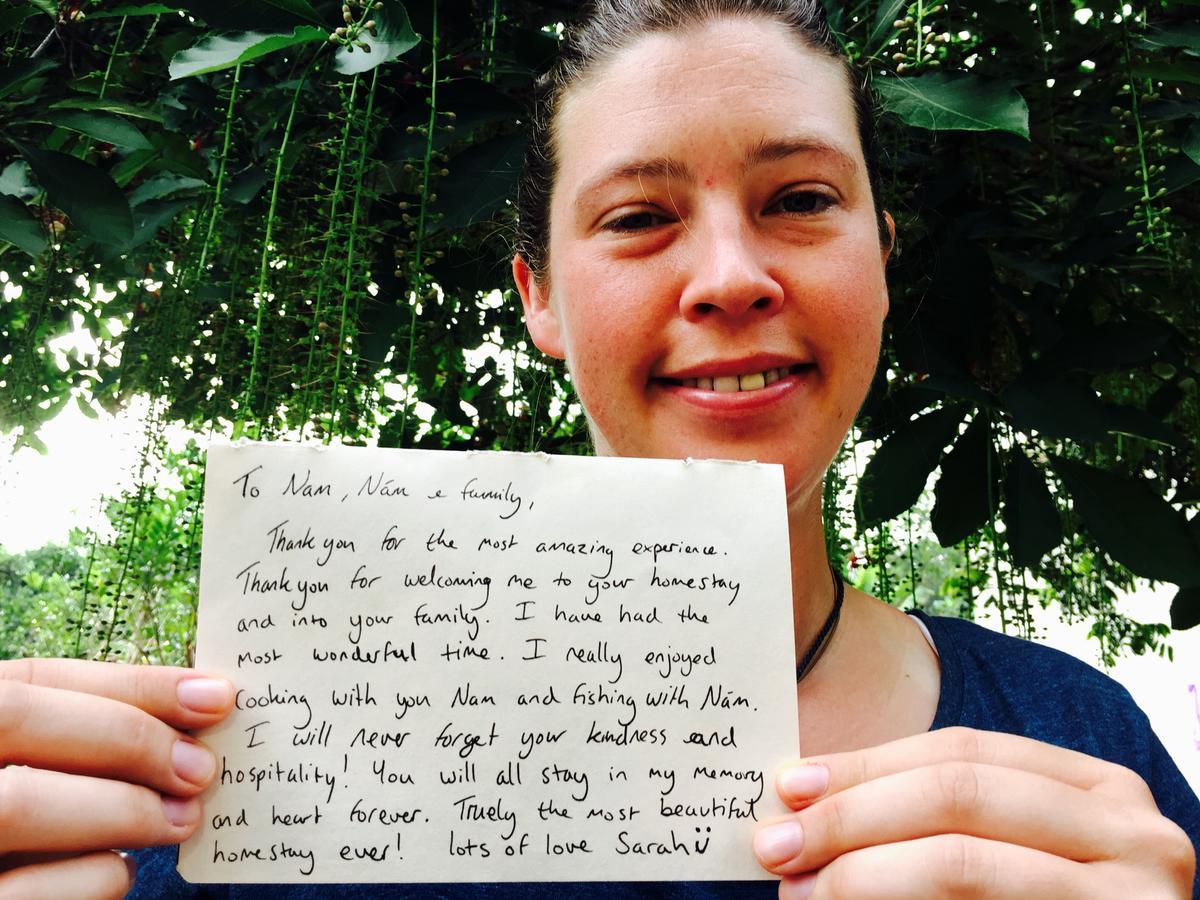 To Nam, Nám e family,
Thank you for the most amazing experience.
Thank you for welcoming me to your homestay
and into your family. I have had the
most wonderful time. I really enjoyed
cooking with you Nam and fishing with Nám.
I will never forget your kindness and
hospitality! You will all stay in my memory
and heart forever. Truely the most beautiful
homestay ever! lots of love Sarah ü